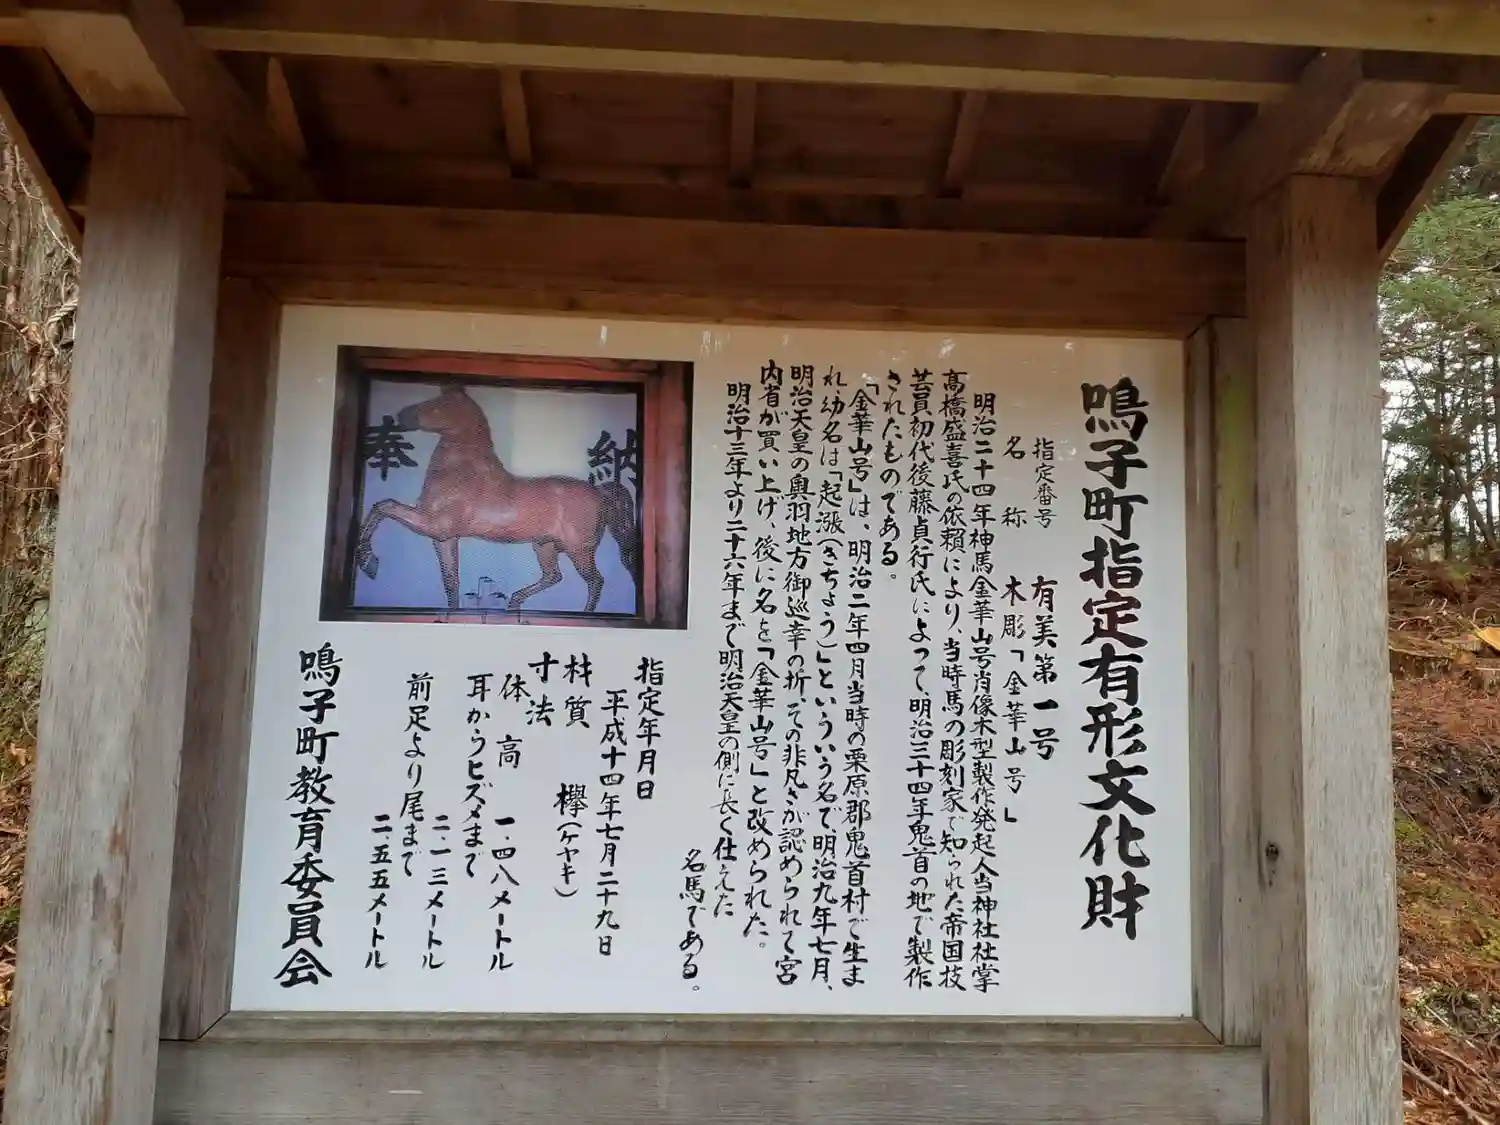 鳴子町指定有形文化財
指定番号 有美第一号
名称 木彫「金華山号」
明治二十四年神馬金華山号肖像木型製作発起人当神社社掌
高橋盛喜氏の依頼により、当時馬の彫刻家で知られた帝国技
芸員初代後藤貞行氏によって、明治三十四年鬼首の地で製作
されたものである。
「金華山号」は、明治二年四月当時の栗原郡鬼首村で生ま
れ幼名は「起漲(きちょう)」といういう名で、明治九年七月、
明治天皇の奥羽地方御巡幸の折、その非凡さが認められて宮
内省が買い上げ、後に名を「金華山号」と改められた。
明治十三年より二十六年まで明治天皇の側に長く仕えた
名馬である。
奉納
指定年月日
平成十四年七月二十九日
材質 欅(ケヤキ)
寸法
体高 一・四八メートル
耳からヒズメまで
二・一三メートル
前足より尾まで
二・五五メートル
鳴子町教育委員会